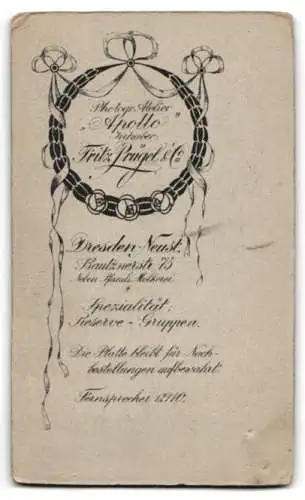 Photogr. Atelier
"Apollo"
Inhaber
Fritz Prügel & Co
Dresden-Neust.
Bautznerstr 75
Neben Pfunds Molkerei
Spezialität:
Reserve-Gruppen.
Die Platte bleibt für Nach-
bestellungen aufbewahrt.
Fernsprecher 12910.